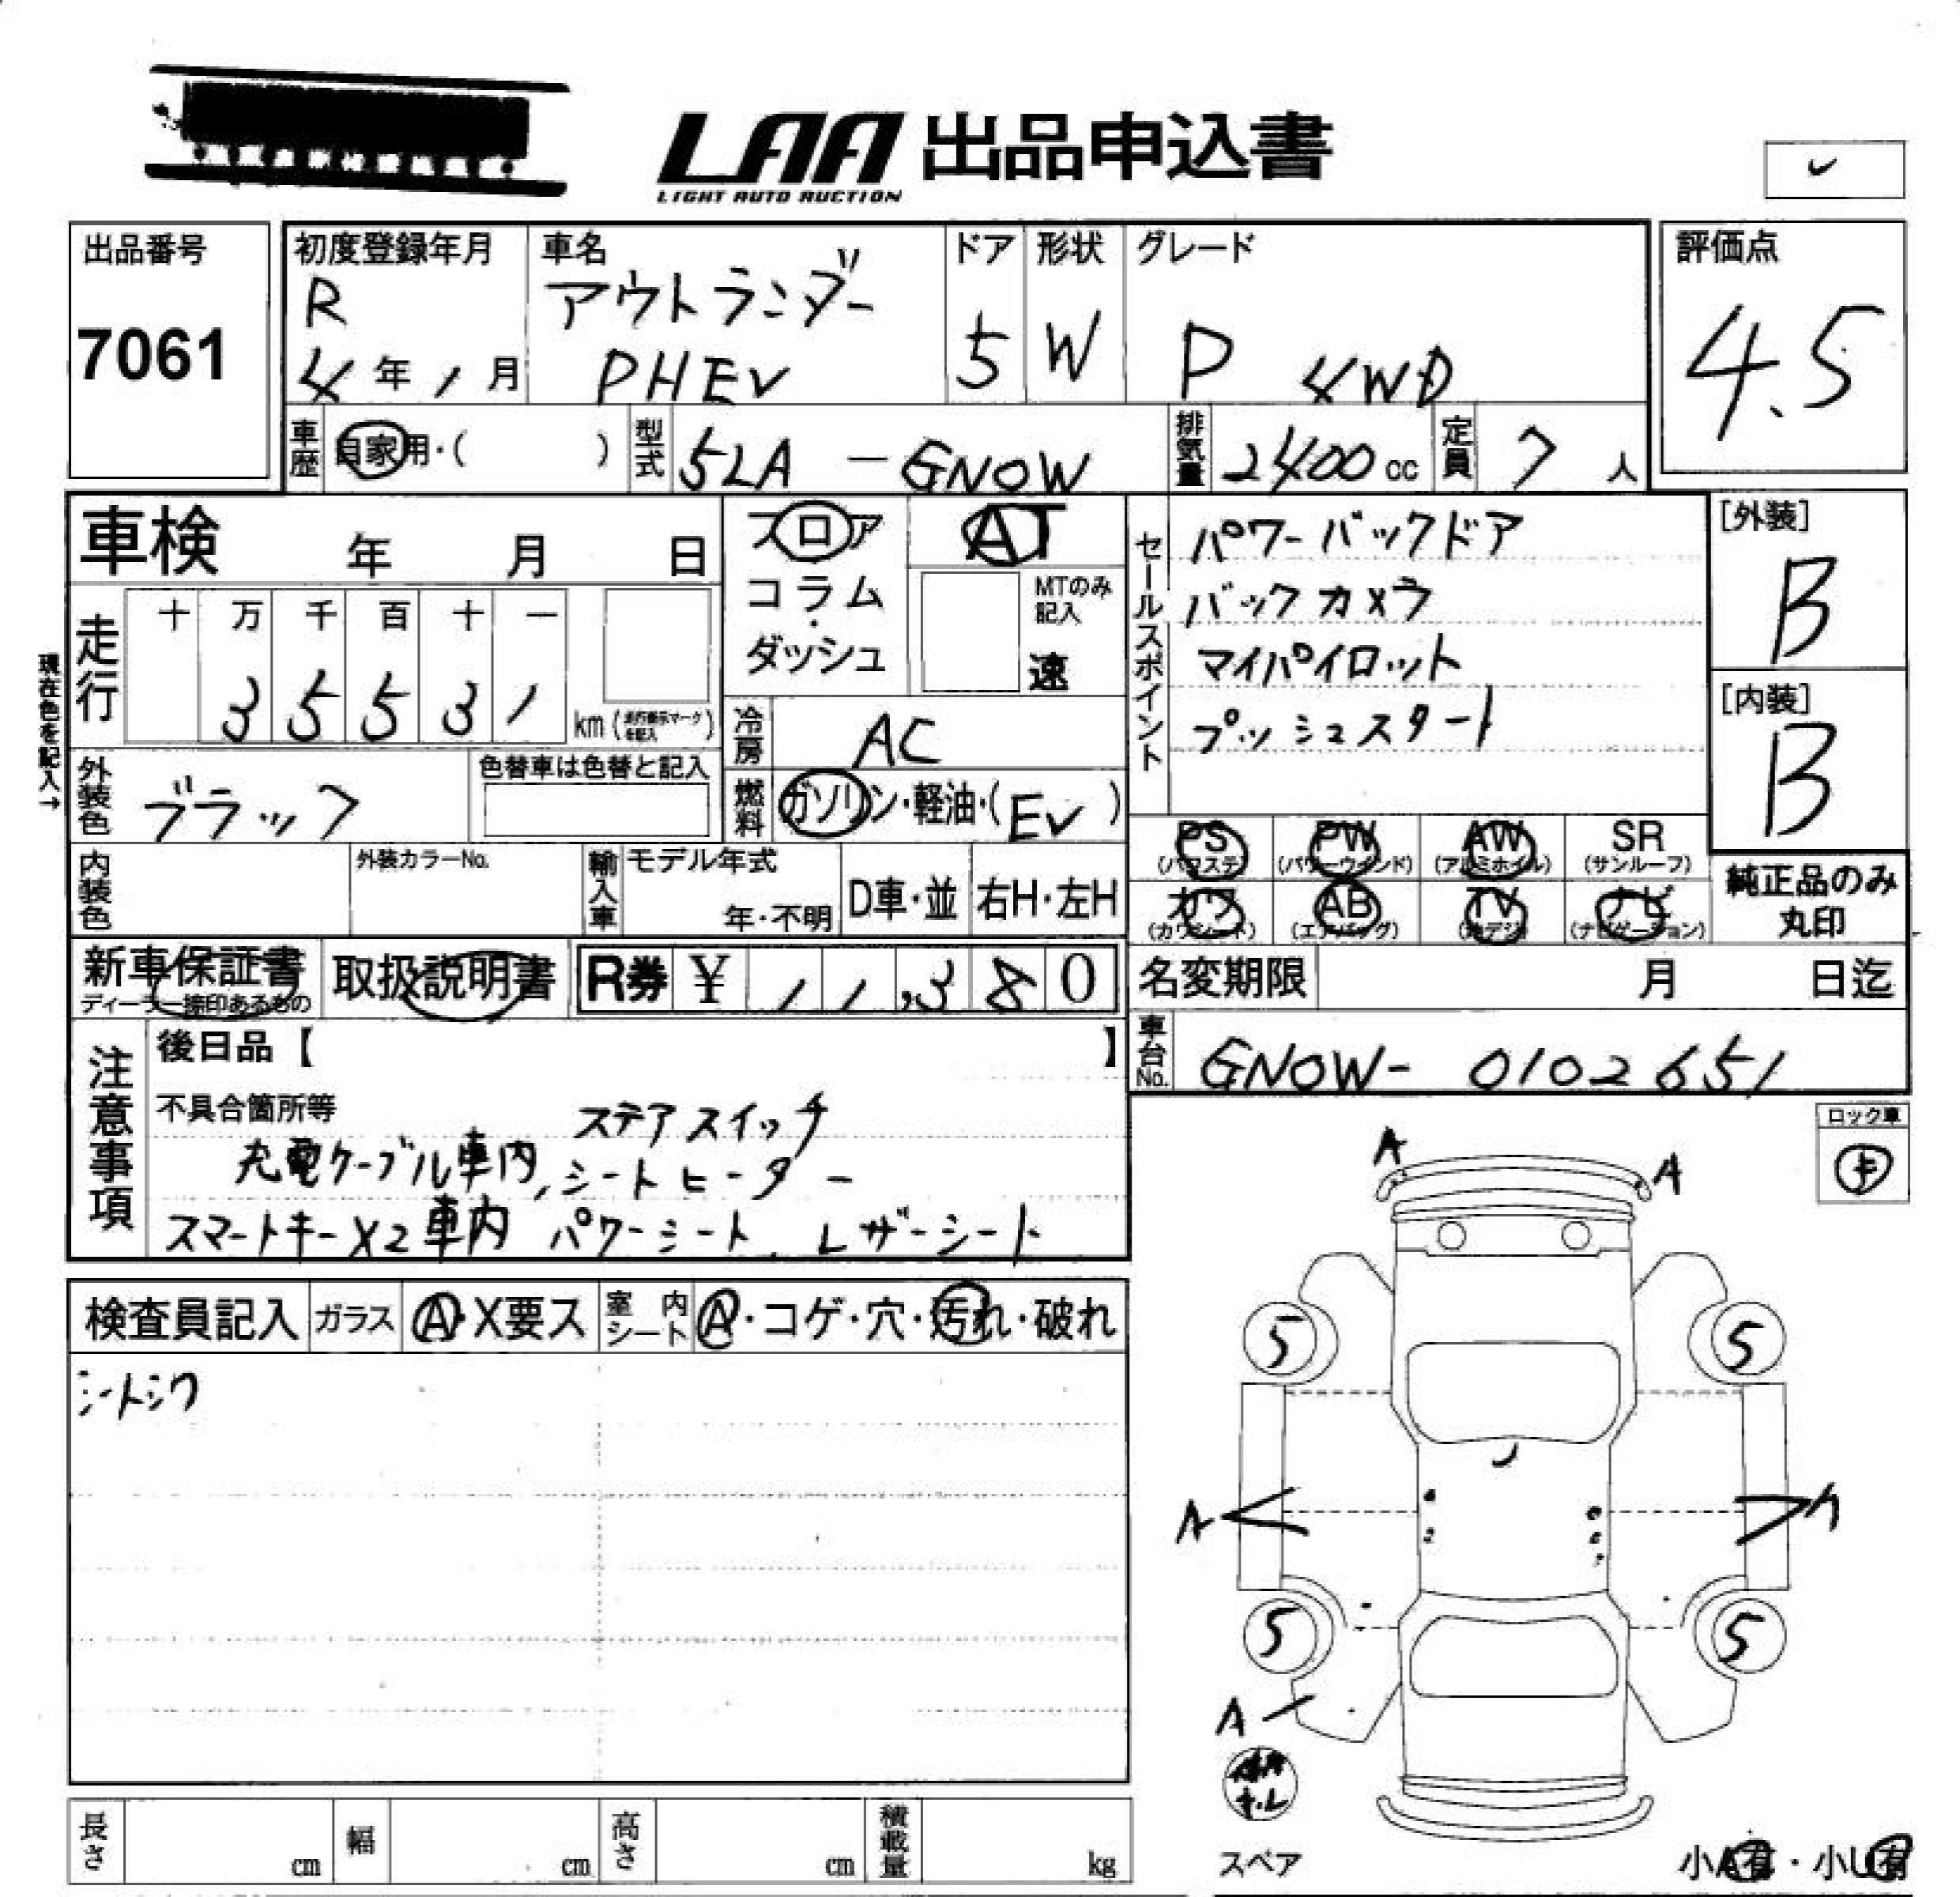 LAA 出品申込書
LIGHT AUTO AUCTION
出品番号
7061
初度登録年月
R
4年1月
車名
アウトランダー
PHEV
ドア
5
形状
W
グレード
P 4WD
評価点
4.5
車歴
自家用・( )
型式
5LA-GN0W
排気量
2400cc
定員
7人
車検 年 月 日
フロア
コラム
・
ダッシュ
AT
MTのみ
記入
速
セールスポイント
パワーバックドア
バックカメラ
マイパイロット
プッシュスタート
[外装]
B
[内装]
B
現在色を記入→
走行
十 万 千 百 十 一
3 5 5 3 1
km(走行表示マークを記入)
冷房
AC
外装色
ブラック
色替車は色替と記入
燃料
ガソリン・軽油・(EV)
PS
(パワステ)
PW
(パワーウインド)
AW
(アルミホイル)
SR
(サンルーフ)
カワ
(カワシート)
AB
(エアバッグ)
TV
(地デジ)
ナビ
(ナビゲーション)
純正品のみ
丸印
内装色
外装カラーNo.
輸入車
モデル年式
年・不明
D車・並
右H・左H
新車保証書
ディーラー捺印あるもの
取扱説明書
R券 ¥ 11,380
名変期限 月 日迄
車台No.
GN0W-0102651
注意事項
後日品【 】
不具合箇所等
ステアスイッチ
充電ケーブル車内、シートヒーター
スマートキーX2車内 パワーシート、レザーシート
ロック車
キ
検査員記入
ガラス
A・X要ス
室内シート
A・コゲ・穴・汚れ・破れ
シートシワ
A
A
5
5
A
5
5
A
スペア
小A有・小U有
長さ cm
幅 cm
高さ cm
積載量 kg